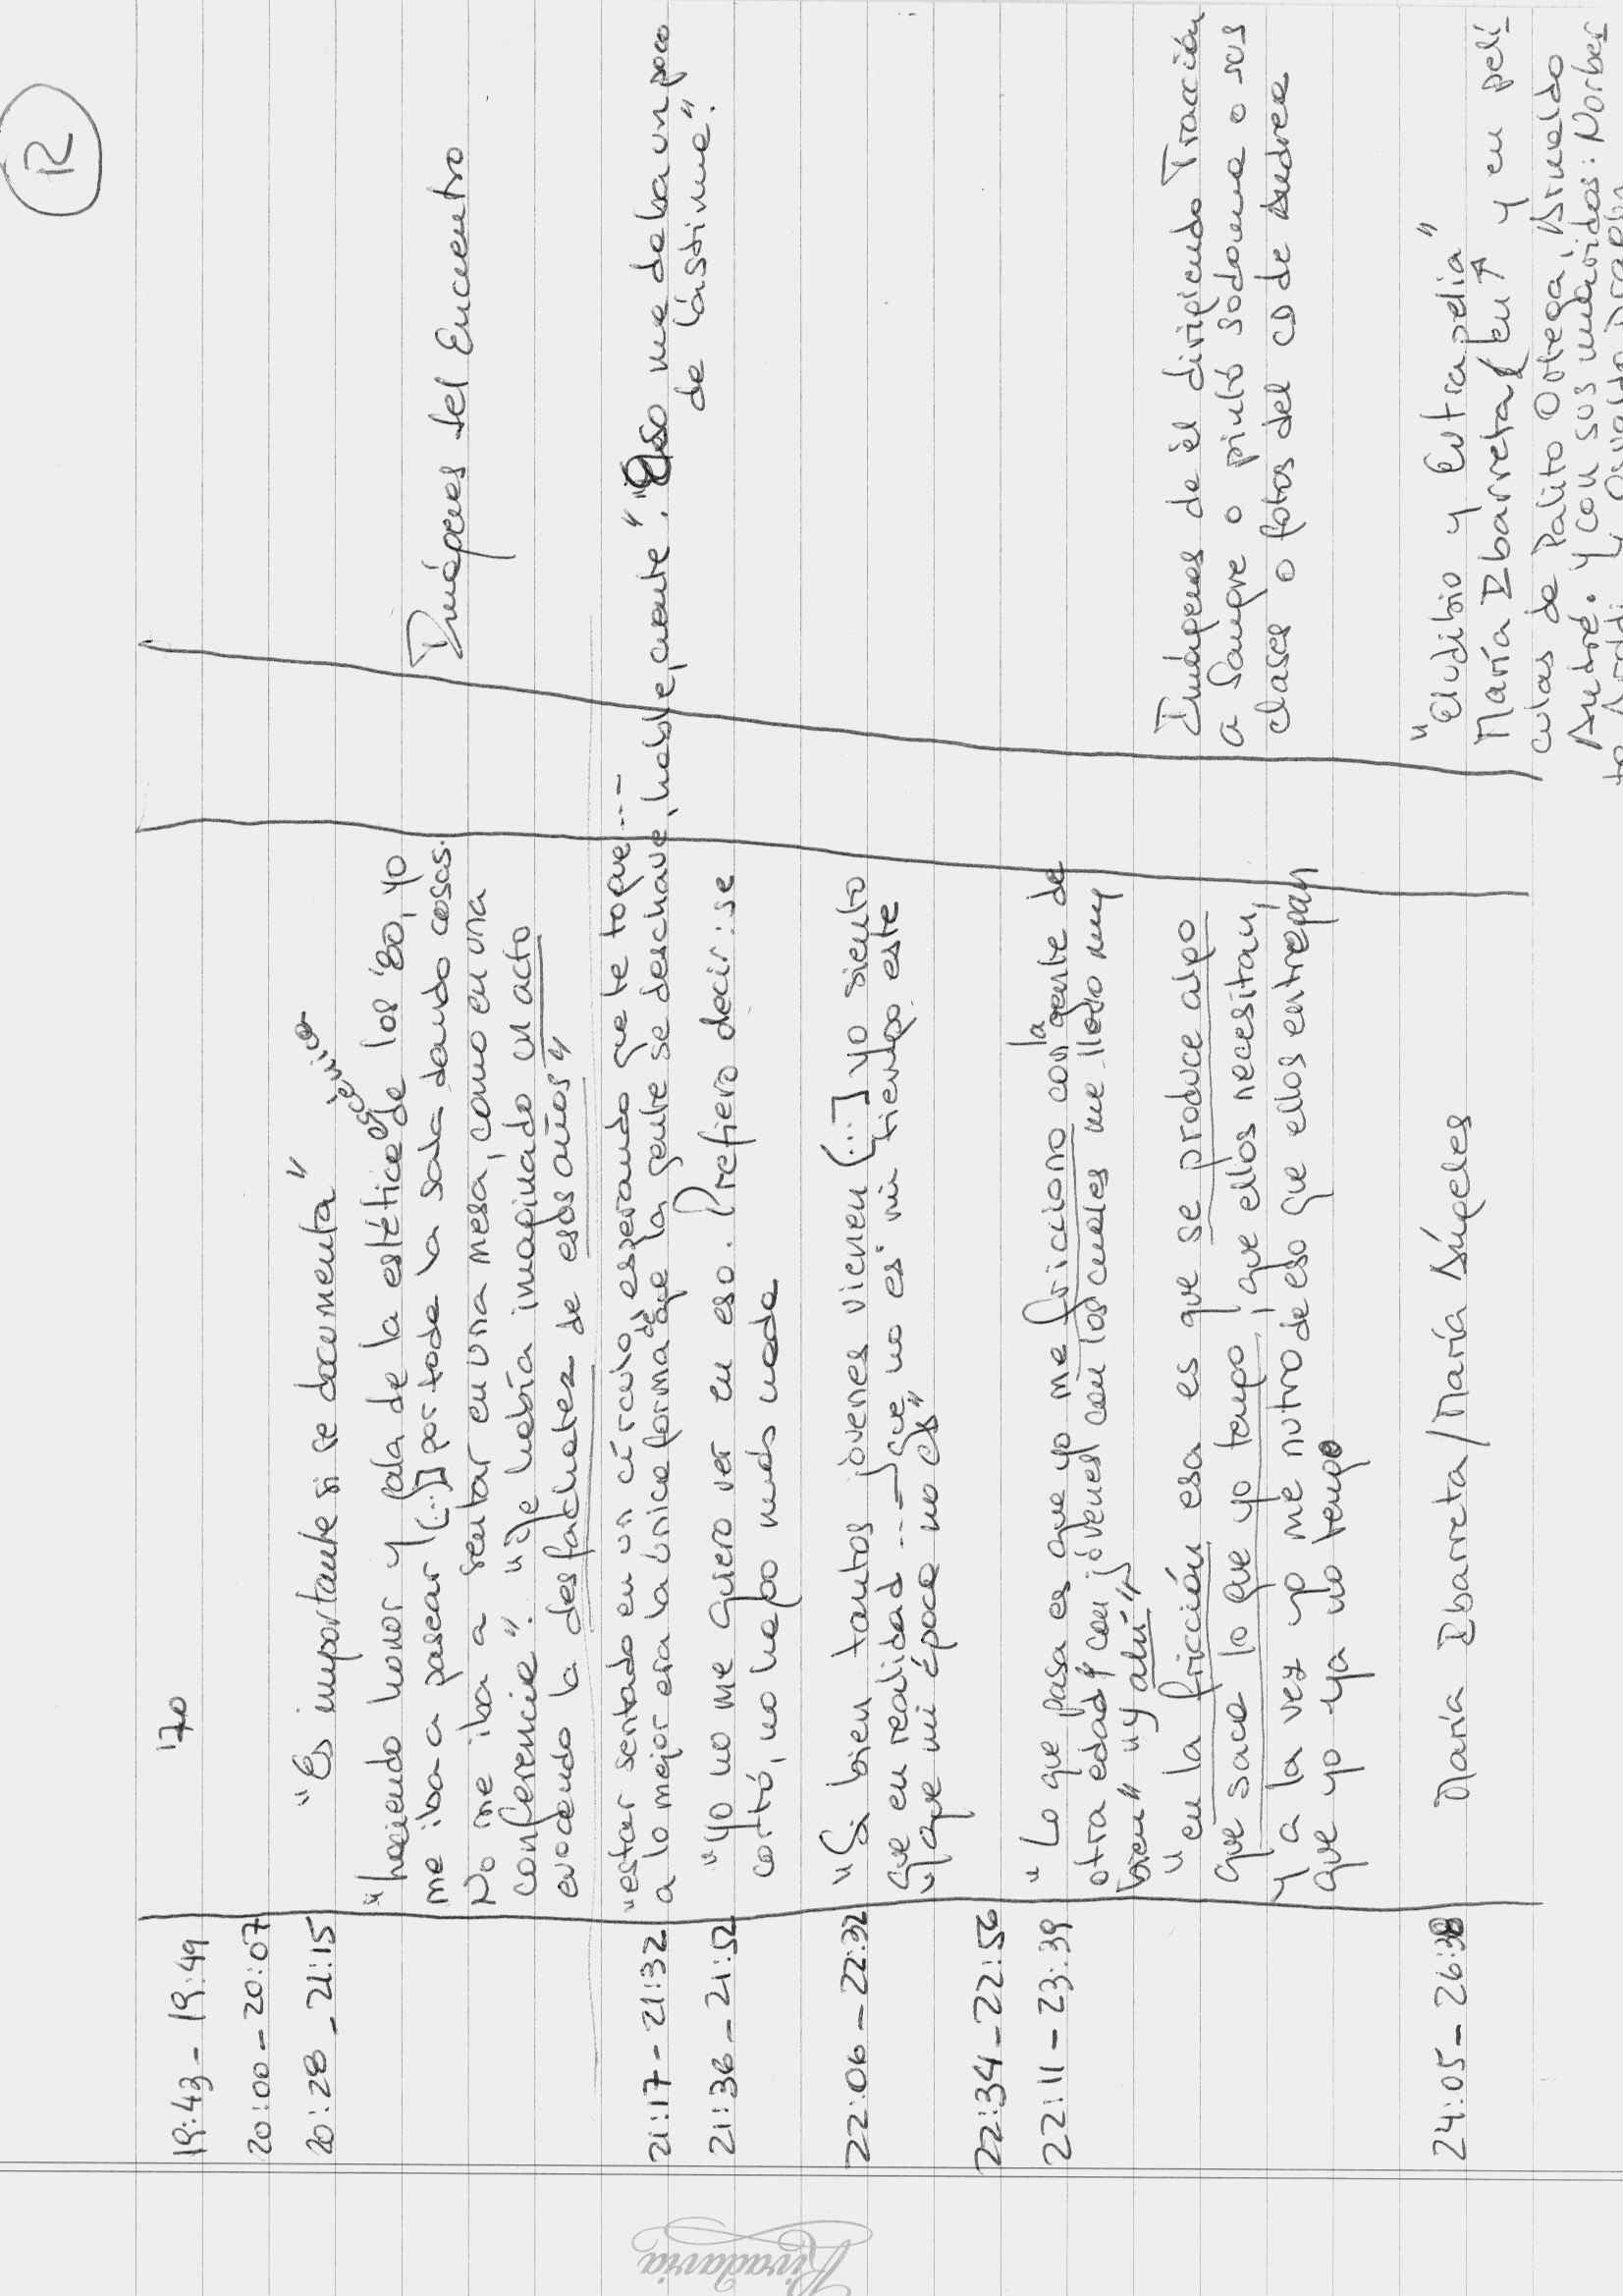 R
19:43 - 19:49
'70
20:00 - 20:07
20:28 - 21:15
"Es importante si se documenta"
"haciendo honor y gala de la estética escénica de los '80, yo
me iba a pasear [...] por toda la sala dando cosas.
No me iba a sentar en una mesa, como en una
conferencia". "Me había imaginado un acto
evocando la desfachatez de esos años"
Imágenes del Encuentro
21:17 - 21:32
"estar sentado en un círculo, esperando que te toque ...
a lo mejor era la única forma de que la gente se deschave, hable, cuente". "Eso me daba un poco
de lástima".
21:36 - 21:52
"yo no me quiero ver en eso. Prefiero decir: se
cortó, no hago más nada
22:06 - 22:32
"Si bien tantos jóvenes vienen [...] yo siento
que en realidad ... que no es mi tiempo este
"que mi época no es"
22:34 - 22:56
22:11 - 23:39
"Lo que pasa es que yo me fricciono con la gente de
otra edad y con jóvenes con los cuales me llevo muy
bien" "y ahí"
"en la fricción esa es que se produce algo
que saca lo que yo tengo, que ellos necesitan,
y a la vez yo me nutro de eso que ellos entregan
que yo ya no tengo
Imágenes de él dirigiendo Tracción
a Sangre o pintó sodoma o sus
clases o fotos del CD de Andrea
24:05 - 26:38
María Ibarreta / María Ángeles
"Eludibio y Eutrapelia"
María Ibarreta (en ↑ y en pelí
culas de Palito Ortega, Arnaldo
André. Y con sus maridos: Norber
to y Osvaldo
Rivadavia